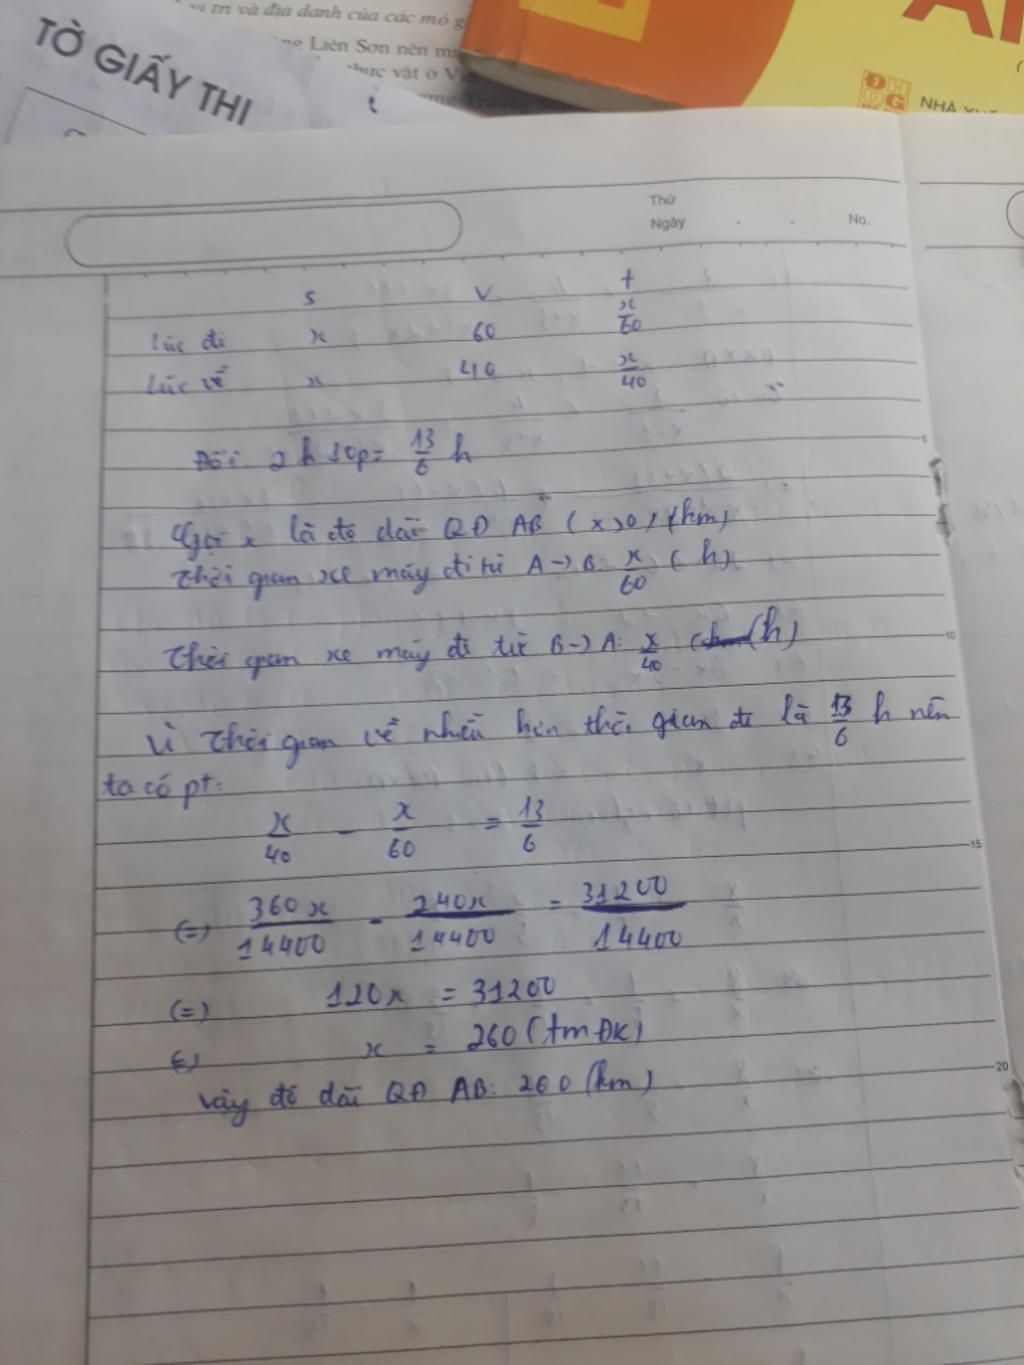 vị trí và địa danh của các mỏ
Liên Sơn nên
thực vật ở
TỜ GIẤY THI
NHÀ
Thứ
Ngày . . No.
s v t
lúc đi x 60 x/60
Lúc về x 40 x/40
Đổi: 2h10p = 13/6 h
5
Gọi x là độ dài QĐ AB (x>0) (km)
Thời gian xe máy đi từ A→B x/60 (h)
10
Thời gian xe máy đi từ B→A: x/40 (h)
Vì thời gian về nhiều hơn thời gian đi là 13/6 h nên
ta có pt:
x/40 - x/60 = 13/6
15
(=) 360x/14400 - 240x/14400 = 31200/14400
(=) 120x = 31200
(=) x = 260 (tmĐK)
20
vậy độ dài QĐ AB: 260 (km)